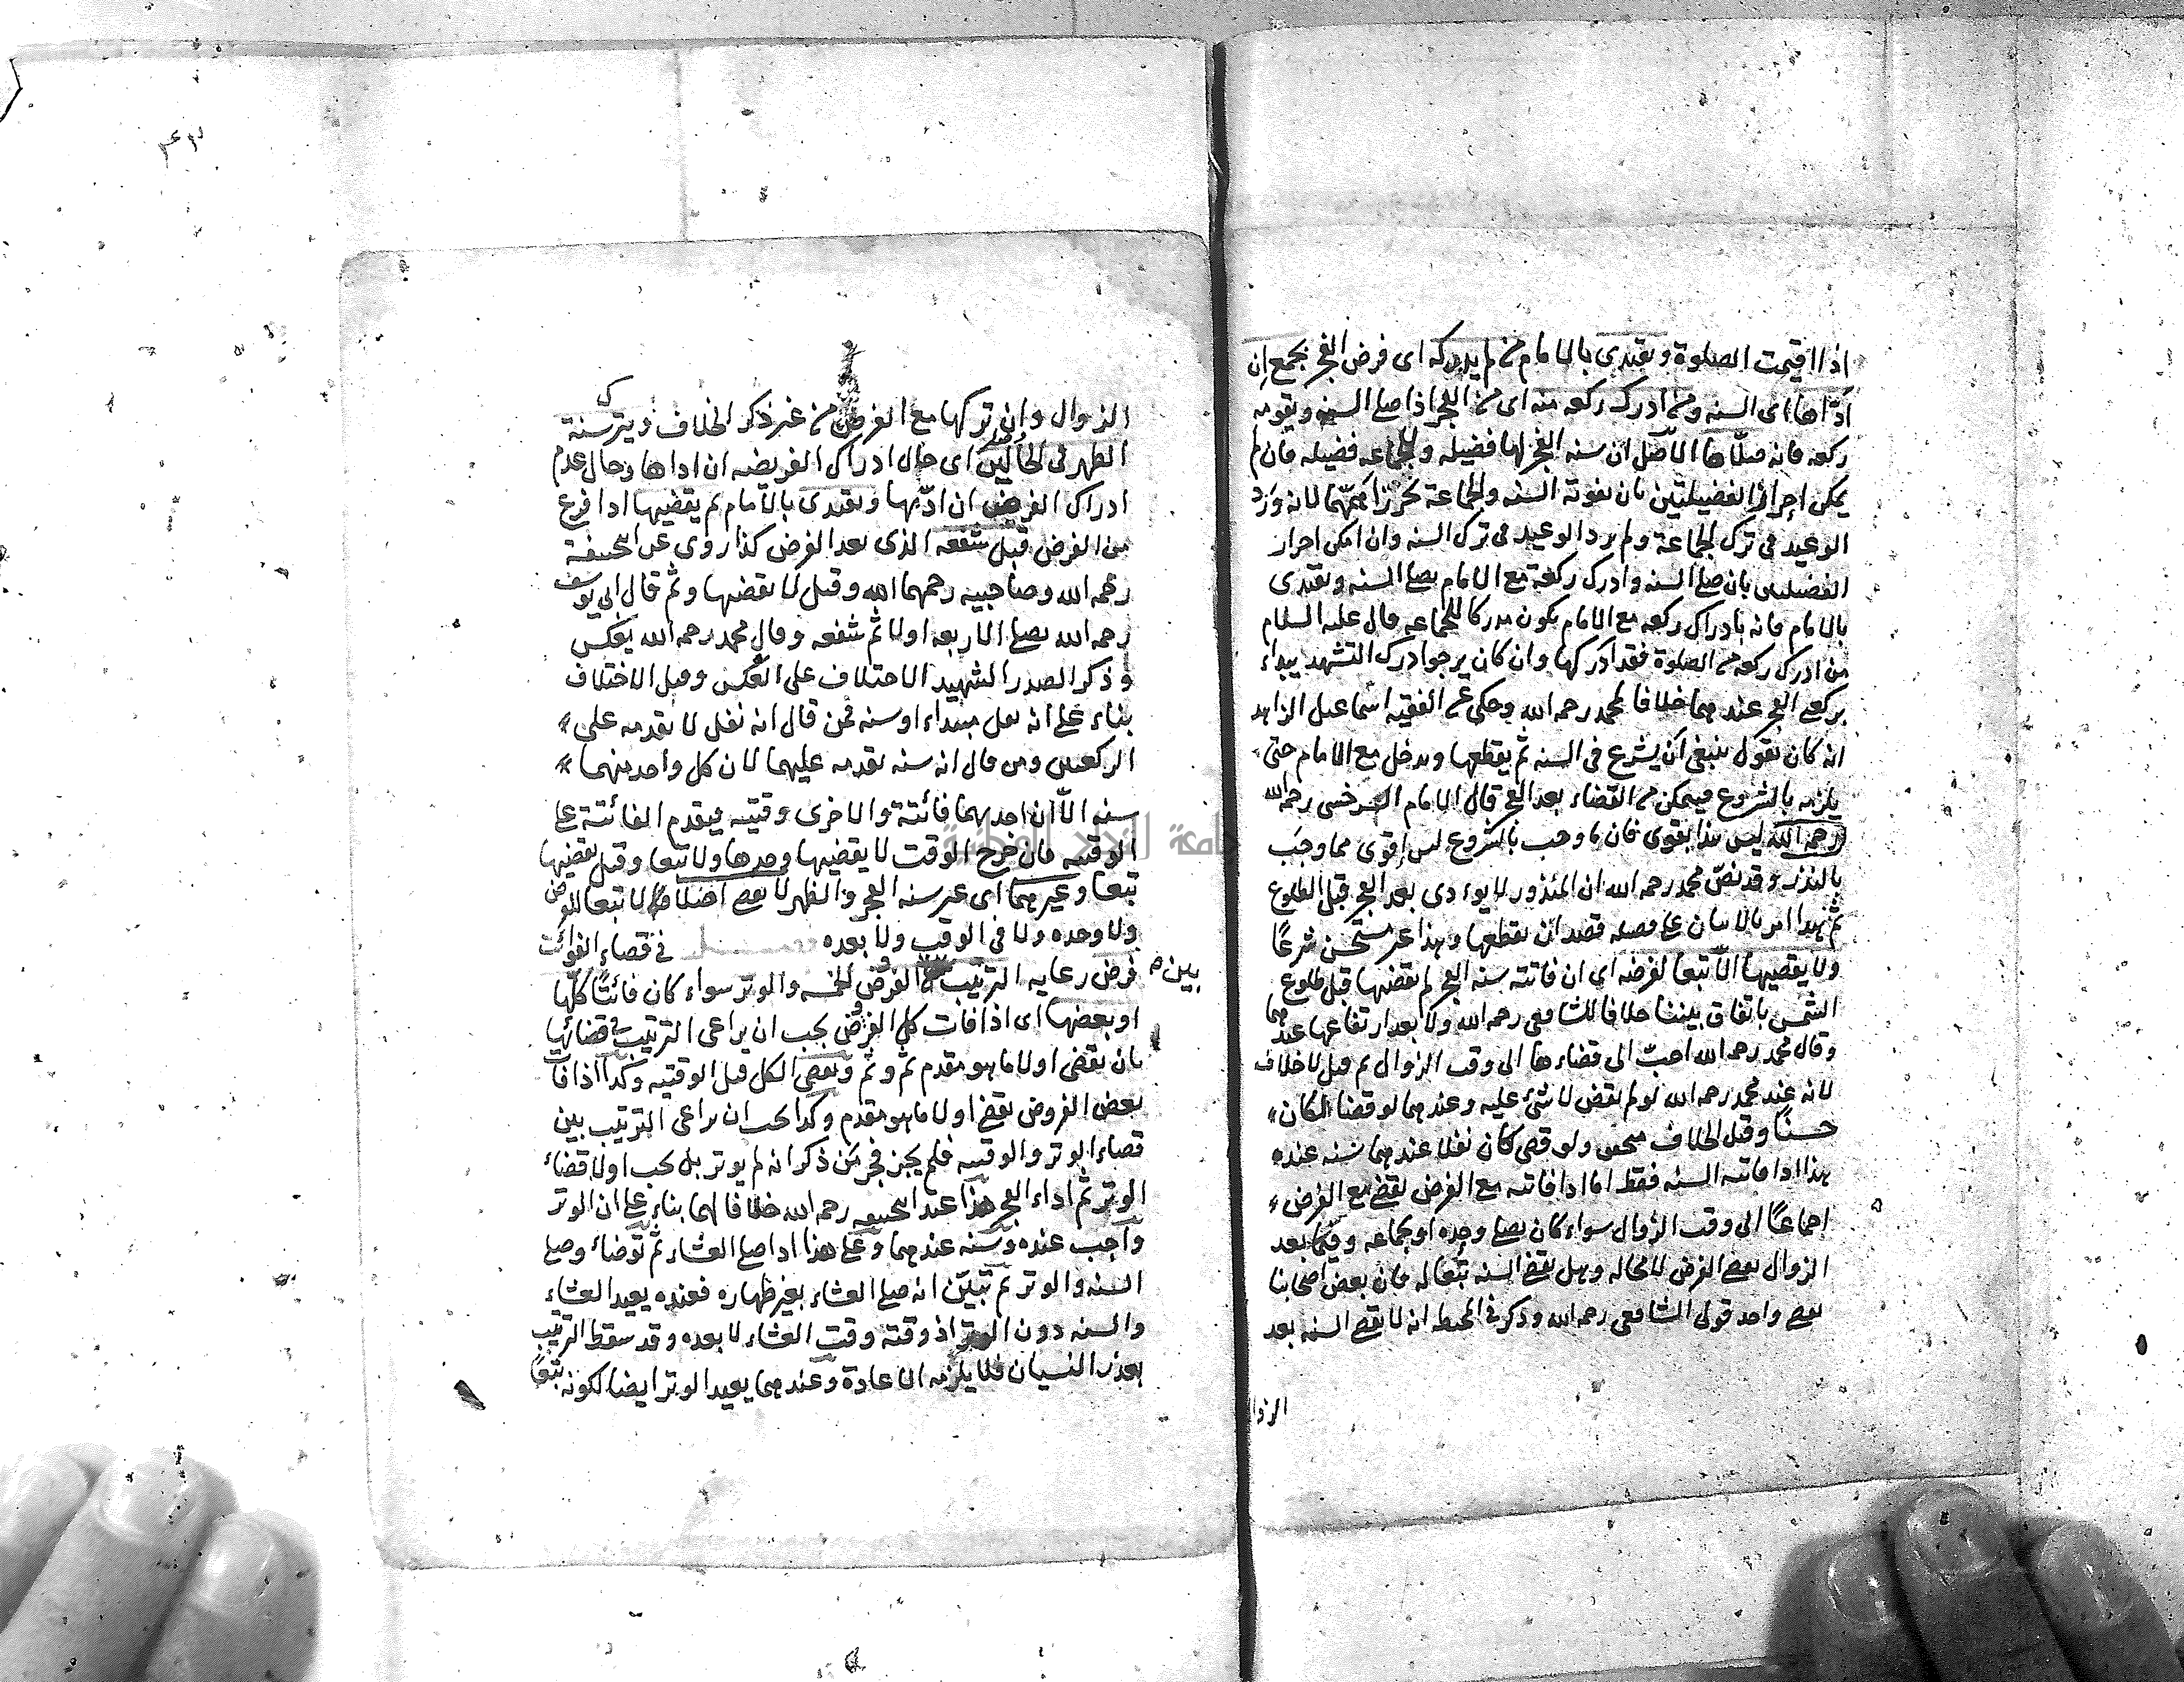 اذا اقيمت الصلوة ويقتدى بالامام من لم يدركه اى فرض الفجر بجمع ان
ادّاها اى السنه ومن ادرك ركعه منه اى من الفجر اذا صلى السنه ويفوته
ركعه فانه صلّاها الاصل ان سنه الفجر لها فضيله وللجماعه فضيله فان لم
يمكن احراز الفضيلتين بان يفوته السنه والجماعة تحرز اهمّهما لانه ورد
الوعيد فى ترك الجماعة ولم يرد الوعيد فى ترك السنه وان امكن احراز
الفضيلتين بان صلى السنه وادرك ركعة مع الامام يصلى السنه ويقتدى
بالامام فانه بادراك ركعه مع الامام يكون مدركا للجماعه قال عليه السلام
من ادرك ركعه من الصلوة فقد ادركها وان كان يرجو ادرك التشهد يبداء
بركعتى الفجر عندهما خلافا لمحمد رحمه الله وحكى عن الفقيه اسماعيل الزاهد
انه كان يقول ينبغى ان يشرع فى السنه ثم يقطعها ويدخل مع الامام حتى
يلزمه بالشروع فيتمكن من القضاء بعد الفجر قال الامام السرخسى رحمه الله
رحمه الله ليس هذا بقوى فان ما وجب بالشروع ليس اقوى مما وجب
بالنذر وقد نصّ محمد رحمه الله ان المنذور لا يوءدى بعد الفجر قبل الطلوع
ثم هذا امر بالاتيان على قصد ان يقطعها وهذا غير مستحسن شرعًا
ولا يقضيها الّا تبعا لفرضه اى ان فاتته سنه الفجر لم يقضها قبل طلوع
الشمس باتفاق بيننا خلافا للشافعى رحمه الله ولا بعد ارتفاعها عندهما
وقال محمد رحمه الله احبّ الى قضاءها الى وقت الزوال ثم قيل لا خلاف
لانه عند محمد رحمه الله لو لم يقض لا شئ عليه وعندهما لو قضا لكان
حسنًا وقيل الخلاف متحقق ولو قضى كان نفلا عندهما سنه عنده
هذا اذا فاتته السنه فقط اما اذا فاتته مع الفرض يقضى مع الفرض
اجماعًا الى وقت الزوال سواء كان يصلى وحده او بجماعه وفيما بعد
الزوال يقضى الفرض لا محاله وهل يقضى السنه تبعا له فان بعض اصحابنا
يقضى واحد قولى الشافعى رحمه الله وذكر فى المحيط انه لا يقضى السنه بعد
الزوا
الزوال وان تركها مع الفرض من غير ذكر الخلاف ويترك سنة
الظهر فى الحالين اى حال ادراك الفريضه ان اداها وحال عدم
ادراك الفرض ان ادّيها ويقتدى بالامام ثم يقضيها اذا فرغ
من الفرض قبل شفعه الذى بعد الفرض كذا روى عن ابى حنيفة
رحمه الله وصاحبيه رحمهما الله وقيل لا يقضيها وثم قال ابى يوسف
رحمه الله يصلى الاربعه اولا ثم شفعه وقال محمد رحمه الله يعكس
وذكر الصدر الشهيد الاختلاف على العكس وقيل الاختلاف
بناء على انه نفل مبتداء او سنه فمن قال انه نفل لا يقدمه على
الركعتين ومن قال انه سنه يقدمه عليهما لان كل واحد منهما
سنه الّا ان احديهما فائتة والاخرى وقتيه فيقدم الفائتة على
الوقتيه فان خرج الوقت لا يقضيها وحدها ولا تبعا وقيل يقضيها
تبعا وغيرهما اى غير سنه الفجر والظهر لا يقضى اصلا لا تبعا للفرض
ولا وحده ولا فى الوقت ولا بعده فى قضاء الفوائت
فرض رعايه الترتيب بين الفروض الخمسه والوتر سواء كان فائتًا كلّها
او بعضها اى اذا فات كل الفروض يجب ان يراعى الترتيب فى قضائها
بان يقضى اولا ما هو مقدم ثم وثم ويقضى الكل قبل الوقتيه وكذا اذا فات
بعض الفروض يقضى اولا ما هو مقدم وكذا يجب ان يراعى الترتيب بين
قضاء الوتر والوقتيه فلم يجز فجر من ذكر انه لم يوتر بل يجب اولا قضاء
الوتر ثم اداء الفجر هذا عند ابى حنيفه رحمه الله خلافا لهما بناء على ان الوتر
واجب عنده وسنه عندهما وعلى هذا اذا صلى العشاء ثم توضاء وصلى
السنه والوتر ثم تبيّن انه صلى العشاء بغير طهاره فعنده يعيد العشاء
والسنه دون الوتر اذ وقته وقت العشاء لا بعده وقد سقط الترتيب
بعذر النسيان فلا يلزمه الاعادة وعندهما يعيد الوتر ايضا لكونه تبعًا
جامعة النجاح الوطنية